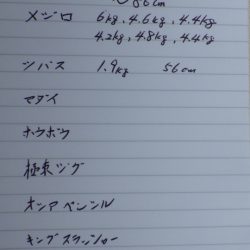 56cm
メジロ 6kg, 4.6kg, 4.4kg
4.2kg, 4.8kg, 4.4kg
ツバス 1.9kg 56cm
マダイ
ホウボウ
極東ジグ
オシアペンシル
キングスラッシャー